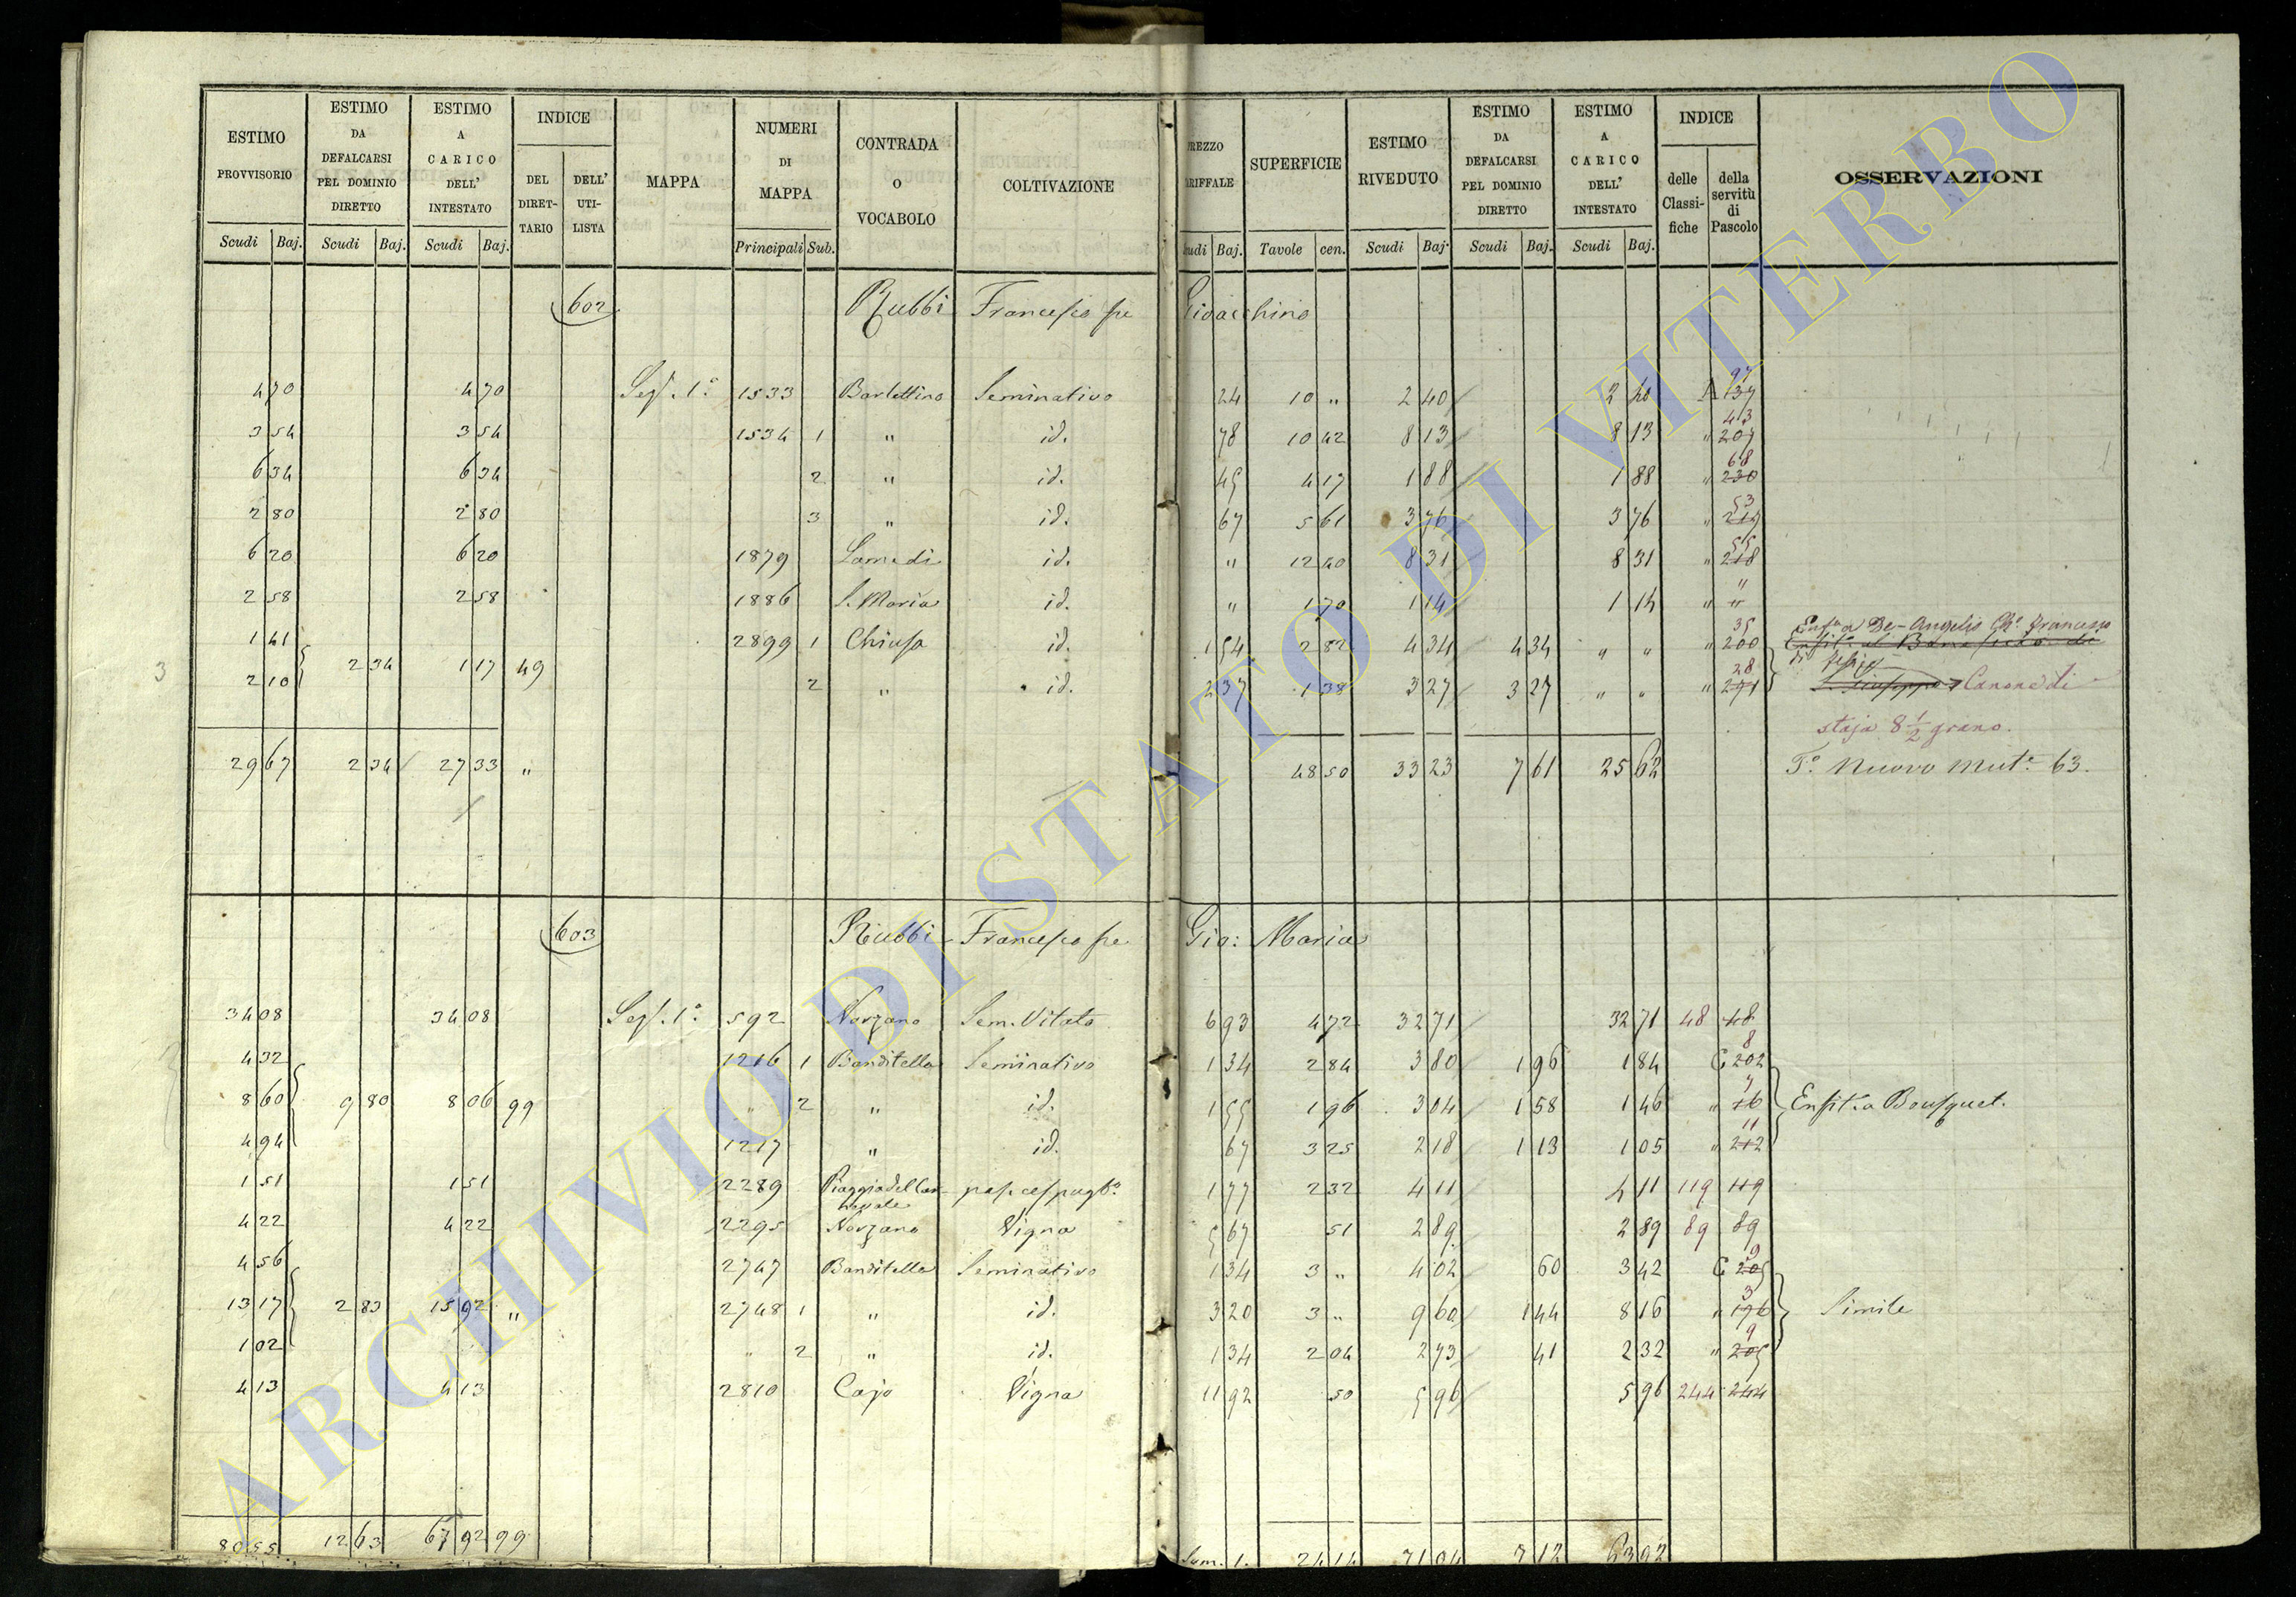 ESTIMO PROVVISORIO Scudi Baj. ESTIMO DA DEFALCARSI PEL DOMINIO DIRETTO Scudi Baj. ESTIMO A CARICO DELL' INTESTATO Scudi Baj. INDICE DEL DIRET-TARIO DELL' UTI-LISTA MAPPA NUMERI DI MAPPA Principali Sub. CONTRADA O VOCABOLO COLTIVAZIONE
REZZO RIFFALE udi Baj. SUPERFICIE Tavole cen. ESTIMO RIVEDUTO Scudi Baj. ESTIMO DA DEFALCARSI PEL DOMINIO DIRETTO Scudi Baj. ESTIMO A CARICO DELL' INTESTATO Scudi Baj. INDICE delle Classi-fiche della servitù di Pascolo OSSERVAZIONI
602 Rubbi Francesco fu Gioacchino
4 70 4 70 Sez. 1a 1533 Barlettino Seminativo 24 10 " 2 40 2 40 A 137 97
3 54 3 54 1534 1 " id. 78 10 42 8 13 8 13 " 207 43
6 34 6 34 2 " id. 45 4 17 1 88 1 88 " 230 68
2 80 2 80 3 " id. 67 5 61 3 76 3 76 " 53
6 20 6 20 1879 id. " 12 40 8 31 8 31 " 218 55
2 58 2 58 1886 S. Maria id. " 1 70 1 14 1 14 " " "
1 41 2899 1 Chiusa id. 1 54 2 82 4 34 4 34 " " " 200 35 Enfta a De-Angelis Francesco
3 2 34 1 17 49
2 10 2 " id. 2 37 1 38 3 27 3 27 " " " 28 Canone di
staja 8 1/2 grano.
29 67 2 34 27 33 " 48 50 33 23 7 61 25 62 To Nuovo Mute 63.
603 Rubbi Francesco fu Gio: Maria
34 08 34 08 Sez. 1a 592 Norzano Sem. Vitato 6 93 4 72 32 71 32 71 48 48
4 32 1216 1 Banditella Seminativo 1 34 2 84 3 80 1 96 1 84 C 202 8
8 60 9 80 8 06 99 " 2 " id. 1 55 1 96 3 04 1 58 1 46 " 16 7 Enfit. a Bousquet.
4 94 1217 " id. 67 3 25 2 18 1 13 1 05 " 212 11
1 51 1 51 2289 Piaggia del 1 77 2 32 4 11 4 11 119 119
4 22 4 22 2295 Norzano Vigna 5 67 51 2 89 2 89 89 89
4 56 2747 Banditella Seminativo 1 34 3 " 4 02 60 3 42 C 205 9
13 17 2 83 15 92 " 2748 1 " id. 3 20 3 " 9 60 1 44 8 16 " 196 3 Simile
1 02 " 2 " id. 1 34 2 04 2 73 41 2 32 " 205 9
4 13 4 13 2810 Cajo Vigna 11 92 50 5 96 5 96 244 244
80 55 12 63 67 92 99 Som. 1. 24 14 71 04 7 12 63 92
ARCHIVIO DI STATO DI VITERBO